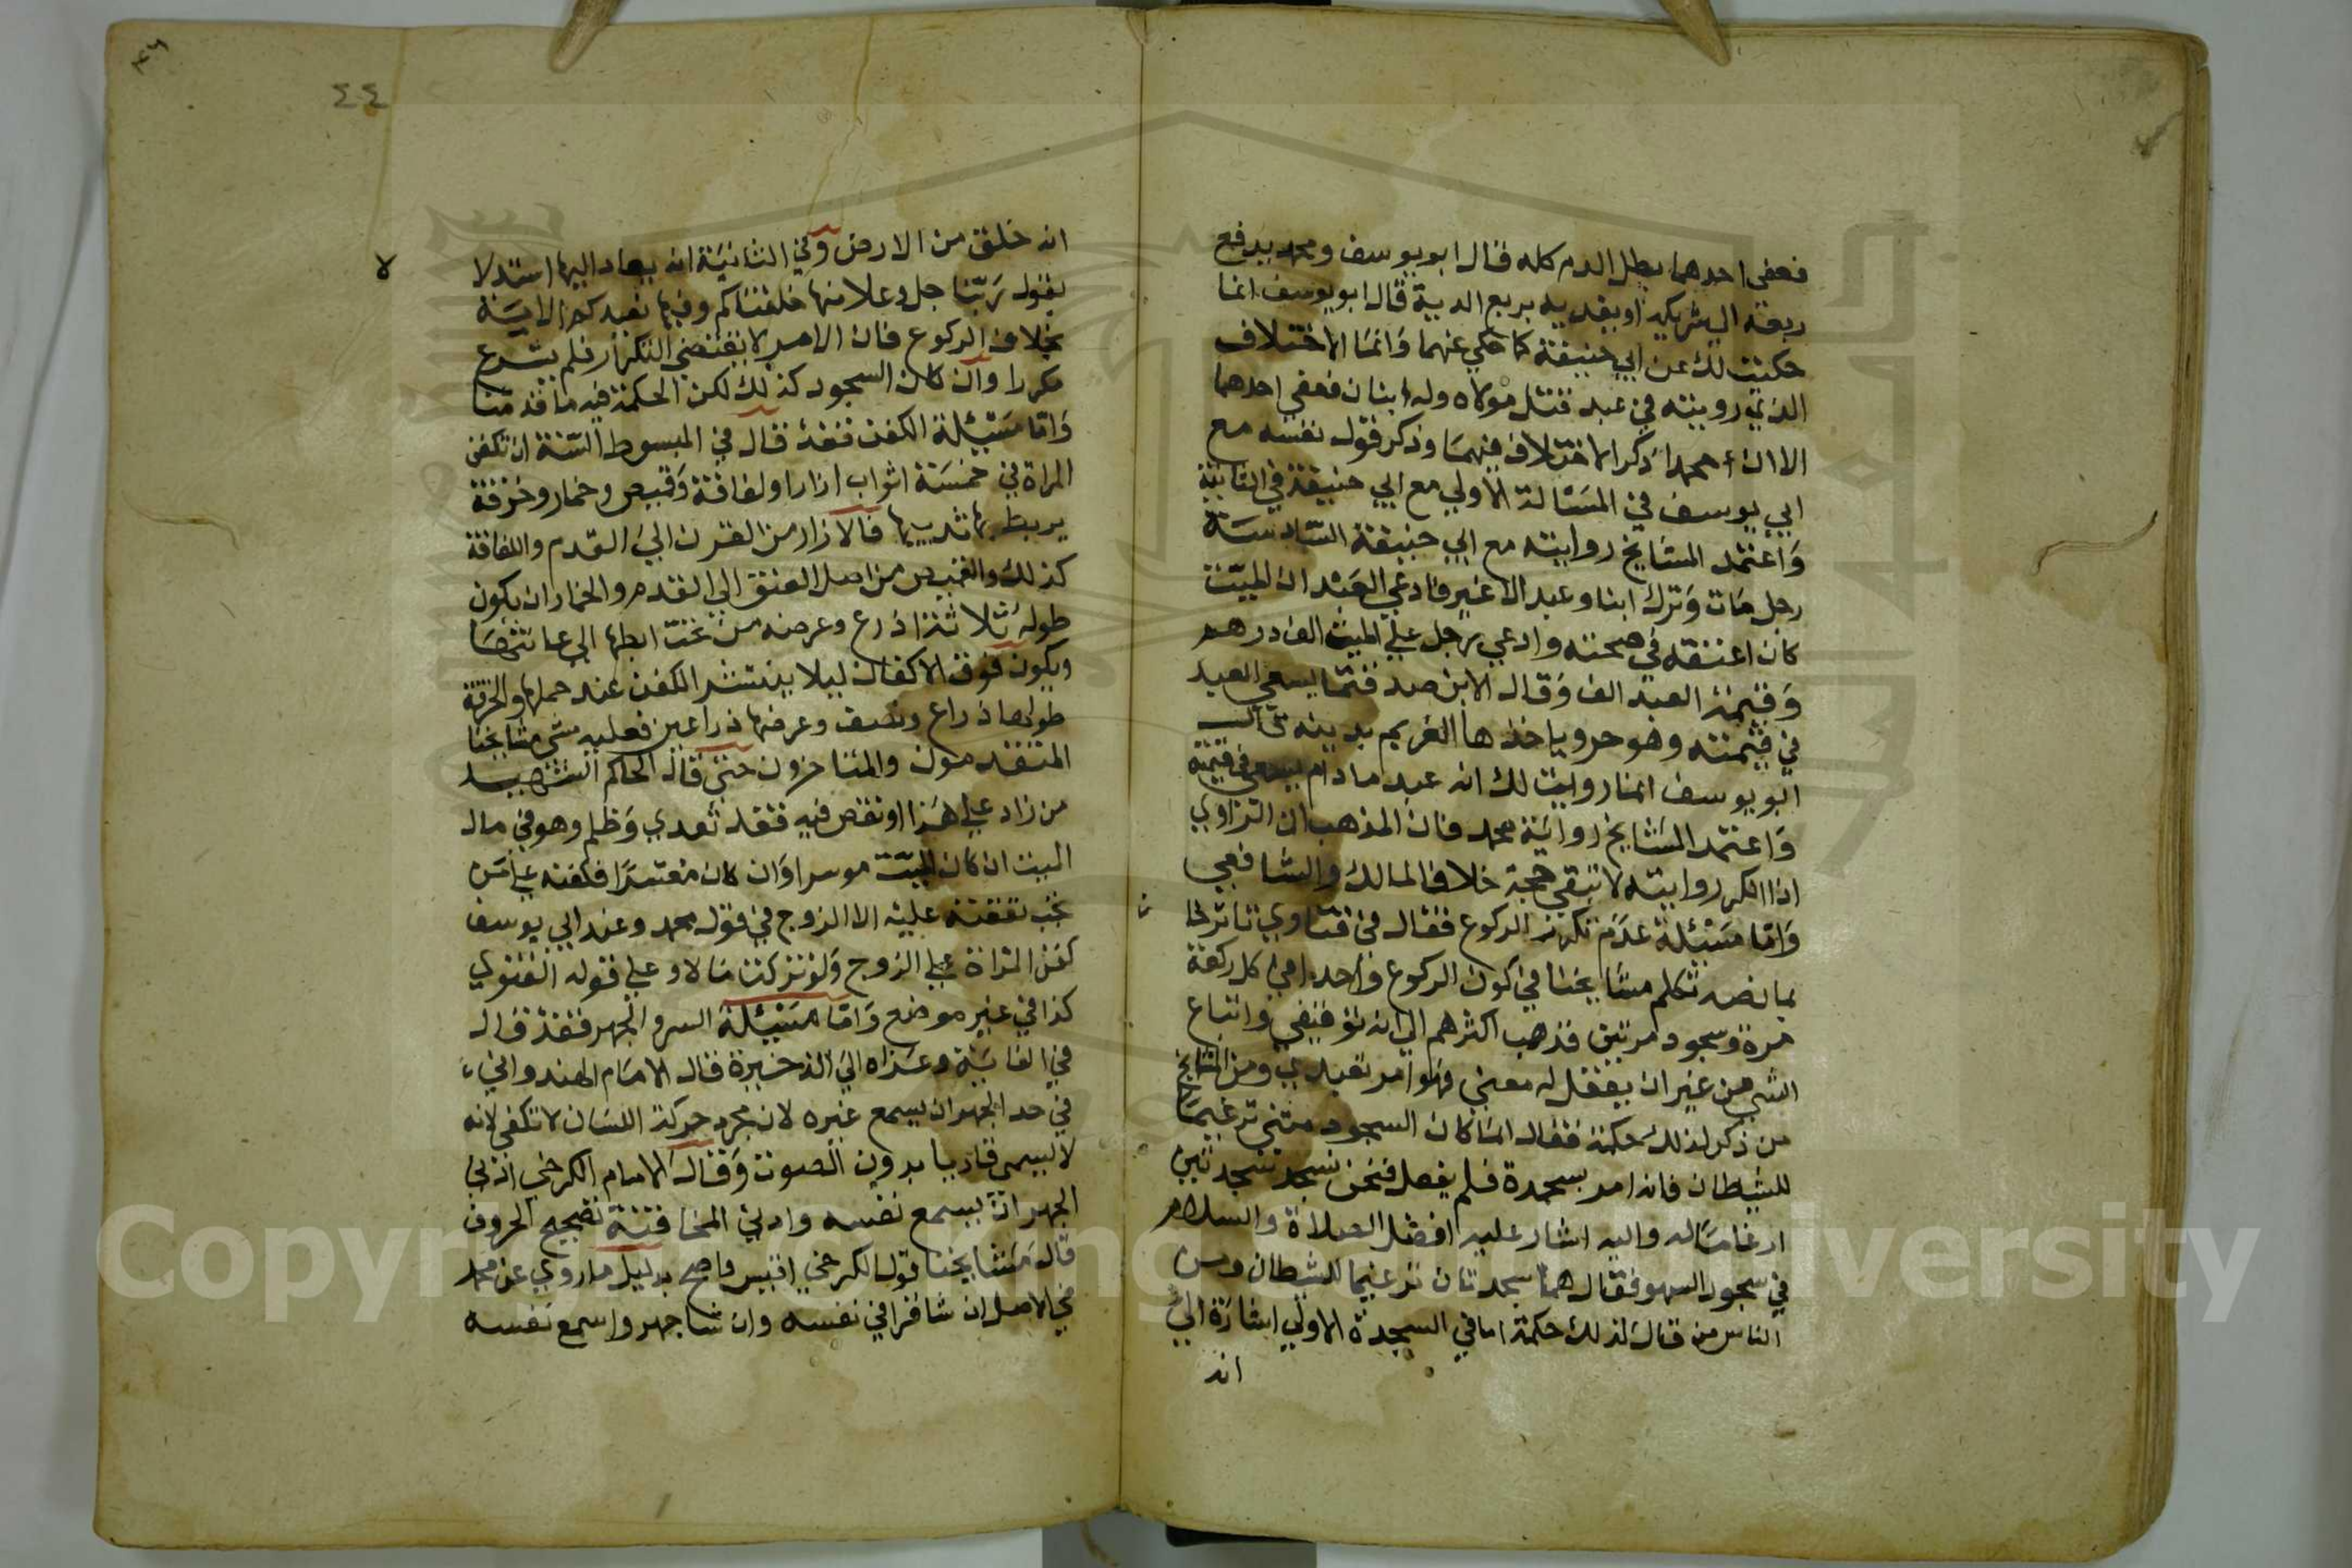 فعفى احدهما بطل الدم كله قال ابو يوسف ومحمد يدفع
ربعه الى شريكه او يفديه بربع الدية قال ابو يوسف انما
حكيت لك عن ابي حنيفة كما حكي عنهما وانما الاختلاف
الذي رويته في عبد قتل مولاه وله ابنان فعفى احدهما
الا ان محمدا ذكر الاختلاف فيهما وذكر قول نفسه مع
ابي يوسف في المسالة الاولي مع ابي حنيفة في الثانية
واعتمد المشايخ روايته مع ابي حنيفة السادسة
رجل مات وترك ابنا وعبد الا غير فادعي العبد ان الميت
كان اعتقه في صحته وادعي رجل علي الميت الف درهم
وقيمة العبد الف وقال الابن صدقتما يسعي العبد
في قيمته وهو حر وياخذها الغريم بدينه قال
ابو يوسف انما رويت لك انه عبد ما دام يسعي في قيمته
واعتمد المشايخ رواية محمد فان المذهب ان الراوي
اذا انكر روايته لا تبقي حجة خلافا لمالك والشافعي
واما مسئلة عدم تكرر الركوع فقال في فتاوي تاترخا
بما نصه تكلم مشايخنا في كون الركوع واحدا في كل ركعة
مرة وسجود مرتين فذهب اكثرهم الي انه توقيفي واتباع
الشي من غير ان يعقل له معني فهو امر تعبدي ومن المشايخ
من ذكر لذلك حكمة فقال انما كان السجود مثني ترغيما
للشيطان فانه امر بسجدة فلم يفعل فنحن نسجد سجدتين
ارغاما له واليه اشار عليه افضل الصلاة والسلام
في سجود السهو فقال هما سجدتان ترغيما للشيطان ومن
الناس من قال لذلك حكمة اما في السجدة الاولي اشارة الي
انه
٤٤
انه خلق من الارض وفي الثانية انه يعاد اليها استدلا
لا
بقول ربنا جل وعلا منها خلقناكم وفيها نعيدكم الاية
بخلاف الركوع فان الامر لا يقتضي التكرار فلم يشرع
مكررا وان كان السجود كذلك لكن الحكمة فيه ما قدمنا
واما مسئلة الكفن فقد قال في المبسوط السنة ان تكفن
المراة في خمسة اثواب ازار ولفافة وقميص وخمار وخرقة
يربط بها ثدييها فالازار من القرن الي القدم واللفافة
كذلك والقميص من اصل العنق الي القدم والخمار ان يكون
طوله ثلاثة اذرع وعرضه من تحت ابطها الي عانتها
ويكون فوق الاكفان ليلا ينتشر الكفن عند حملها والخرقة
طولها ذراع ونصف وعرضها ذراعين فعليه مشي مشايخنا
المتقدمون والمتاخرون حتي قال الحاكم الشهيد
من زاد علي هذا او نقص فيه فقد تعدي وظلم وهو في مال
الميت ان كان الميت موسرا وان كان معسرا فكفنه علي من
تجب نفقته عليه الا الزوج في قول محمد وعند ابي يوسف
كفن المراة علي الزوج ولو تركت مالا وعلي قوله الفتوي
كذا في غير موضع واما مسئلة السر والجهر فقد قال
في الغاية وعزاه الي الذخيرة قال الامام الهندواني
في حد الجهر ان يسمع غيره لان مجرد حركة اللسان لا تكفي لانه
لا يسمي قاريا بدون الصوت وقال الامام الكرخي ادني
الجهر ان يسمع نفسه وادني المخافتة تصحيح الحروف
قال مشايخنا قول الكرخي اقيس واصح بدليل ما روي عن محمد
في الاصل ان شا قرا في نفسه وان شا جهر واسمع نفسه